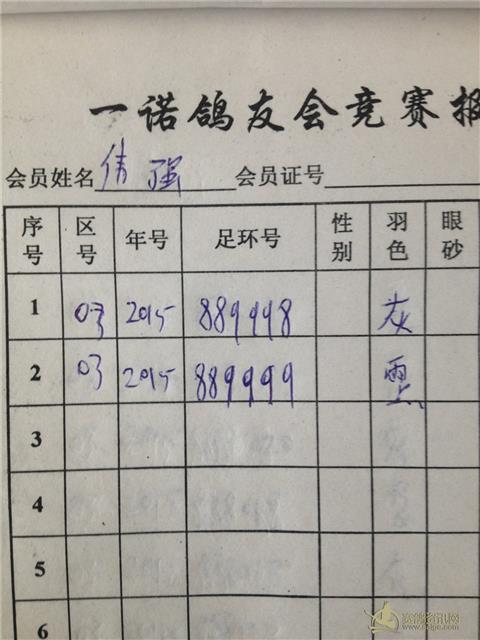 一诺鸽友会竞赛报
会员姓名 倩强 会员证号
序号 区号 年号 足环号 性别 羽色 眼砂
1 03 2015 889998 灰
2 03 2015 889999
3
4
5
6